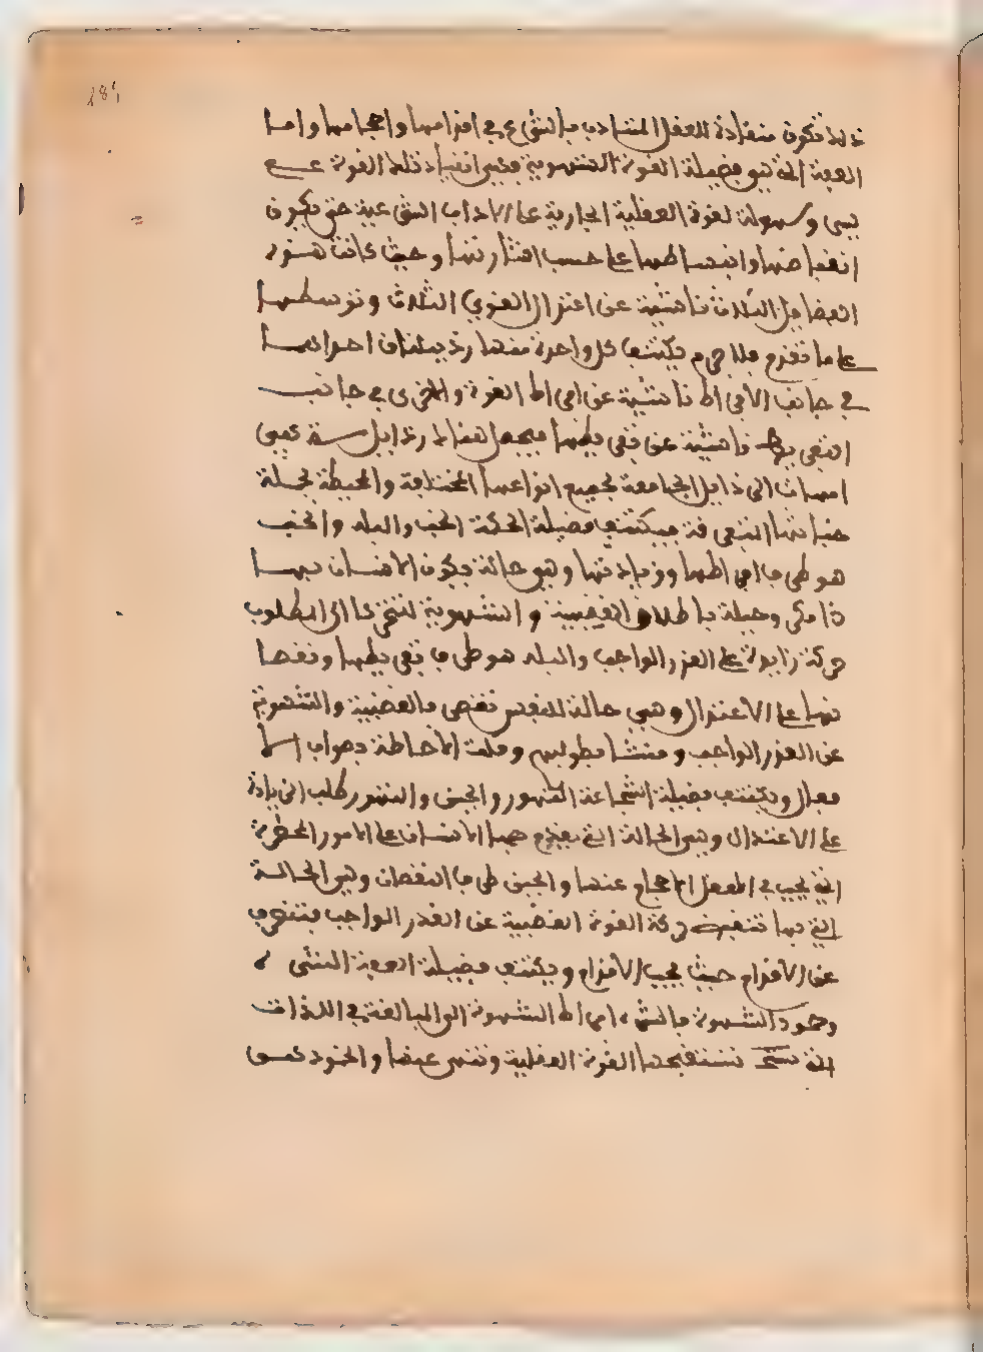 ذلك فتكون منقادة للعقل المتأدب بالشرع في اقدامها واحجامها واما
العفة التي هي فضيلة القوة الشهوية فهي انقياد تلك القوة على
يسر وسهولة لقوة العقلية الجارية على الاداب الشرعية حتى يكون
انقباضها وانبساطها على حسب اشارتها وحيث كانت هذه
الفضايل الثلاث ناشئة عن اعتدال القوى الثلاث وتوسطها
على ما تقدم فلا جرم يكتنف كل واحدة منها رذيلتان احداهما
في جانب الافراط ناشئة عن افراط القوة والاخرى في جانب
التفريط ناشئة عن تفريطها فيحصل هناك رذايل ستة هي
امهات الرذايل الجامعة لجميع انواعها المختلفة والمحيطة بجملة
المتفرقة فيكتنف فضيلة الحكمة الخب والبله والخب
هو طرف افراطها وزيادتها وهي حالة يكون الانسان بها
ذا مكر وحيلة باطلاق الغضبية والشهوية لتتحركا الى المطلوب
حركة زايدة على القدر الواجب والبله هو طرف تفريطها ونقصا
نها على الاعتدال وهي حالة للنفس تقصر بالغضبية والشهوية
عن القدر الواجب ومنشا وقلت الاحاطة بصواب الا
فعال ويكتنف فضيلة الشجاعة التهور والجبن والتهور طلب الزيادة
على الاعتدال وهي الحالة التي يقدم بها الانسان على الامور الخطرة
التي يجب في العقل الاحجام عنها والجبن طرف النقصان وهي الحالة
التي بها تنقبض حركة القوة الغضبية عن القدر الواجب فتنصرف
عن الاقدام حيث يجب الاقدام ويكتنف فضيلة العفة الشره
وخمود الشهوة فالشره افراط الشهوة الى المبالغة في اللذات
التي تستقبحها القوة العقلية وتنهى عنها والخمود هو